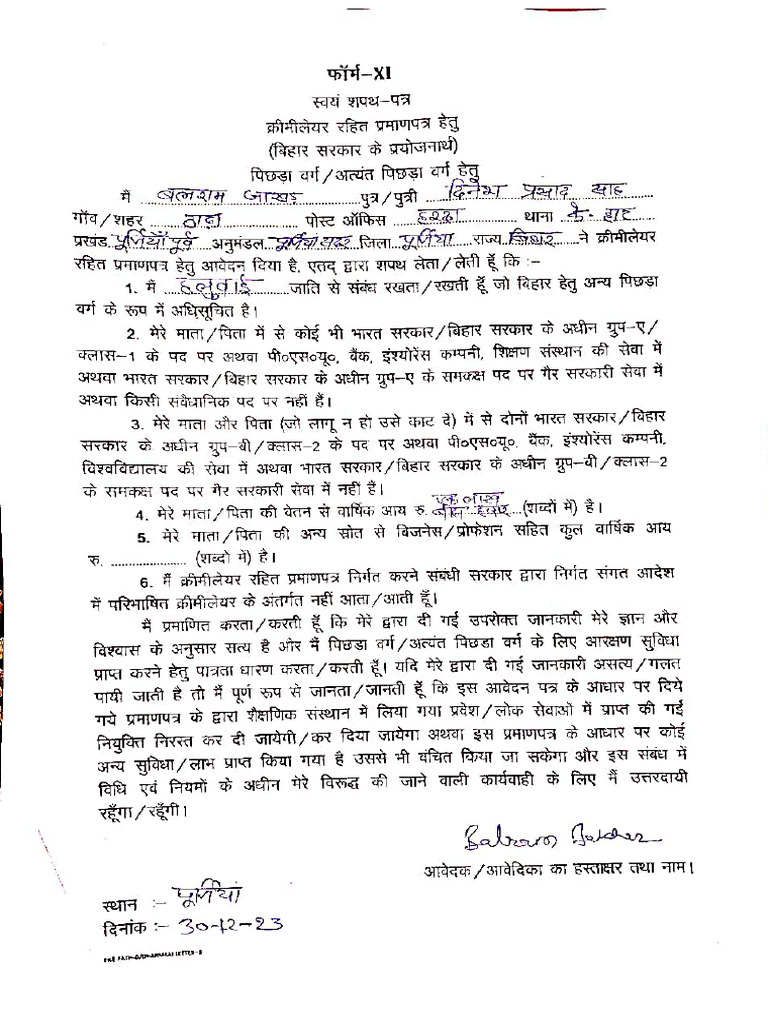 फॉर्म-XI
स्वयं शपथ-पत्र
क्रीमीलेयर रहित प्रमाणपत्र हेतु
(बिहार सरकार के प्रयोजनार्थ)
पिछड़ा वर्ग/अत्यंत पिछड़ा वर्ग हेतु
मैं बलराम जाखड़ पुत्र/पुत्री दिनेश प्रसाद साह
गाँव/शहर पोस्ट ऑफिस हरदा थाना के. हाट
प्रखंड पूर्णियाँ पूर्व अनुमंडल पूर्णियाँ सदर जिला पूर्णिया राज्य बिहार ने क्रीमीलेयर
रहित प्रमाणपत्र हेतु आवेदन दिया है, एतद् द्वारा शपथ लेता/लेती हूँ कि :-
1. मैं हलुवाई जाति से संबंध रखता/रखती हूँ जो बिहार हेतु अन्य पिछड़ा
वर्ग के रूप में अधिसूचित है।
2. मेरे माता/पिता में से कोई भी भारत सरकार/बिहार सरकार के अधीन ग्रुप-ए/
क्लास-1 के पद पर अथवा पी०एस०यू०, बैंक, इंश्योरेंस कम्पनी, शिक्षण संस्थान की सेवा में
अथवा भारत सरकार/बिहार सरकार के अधीन ग्रुप-ए के समकक्ष पद पर गैर सरकारी सेवा में
अथवा किसी संवैधानिक पद पर नहीं हैं।
3. मेरे माता और पिता (जो लागू न हो उसे काट दे) में से दोनों भारत सरकार/बिहार
सरकार के अधीन ग्रुप-बी/क्लास-2 के पद पर अथवा पी०एस०यू०, बैंक, इंश्योरेंस कम्पनी,
विश्वविद्यालय की सेवा में अथवा भारत सरकार/बिहार सरकार के अधीन ग्रुप-बी/क्लास-2
के समकक्ष पद पर गैर सरकारी सेवा में नहीं हैं।
एक लाख
4. मेरे माता/पिता की वेतन से वार्षिक आय रु. बीस हजार (शब्दों में) है।
5. मेरे माता/पिता की अन्य स्रोत से बिजनेस/प्रोफेशन सहित कुल वार्षिक आय
रु. ..................... (शब्दो में) है।
6. मैं क्रीमीलेयर रहित प्रमाणपत्र निर्गत करने संबंधी सरकार द्वारा निर्गत संगत आदेश
में परिभाषित क्रीमीलेयर के अंतर्गत नहीं आता/आती हूँ।
मैं प्रमाणित करता/करती हूँ कि मेरे द्वारा दी गई उपरोक्त जानकारी मेरे ज्ञान और
विश्वास के अनुसार सत्य है और मैं पिछडा वर्ग/अत्यंत पिछडा वर्ग के लिए आरक्षण सुविधा
प्राप्त करने हेतु पात्रता धारण करता/करती हूँ। यदि मेरे द्वारा दी गई जानकारी असत्य/गलत
पायी जाती है तो मैं पूर्ण रूप से जानता/जानती हूँ कि इस आवेदन पत्र के आधार पर दिये
गये प्रमाणपत्र के द्वारा शैक्षणिक संस्थान में लिया गया प्रवेश/लोक सेवाओं में प्राप्त की गई
नियुक्ति निरस्त कर दी जायेगी/कर दिया जायेगा अथवा इस प्रमाणपत्र के आधार पर कोई
अन्य सुविधा/लाभ प्राप्त किया गया है उससे भी वंचित किया जा सकेगा और इस संबंध में
विधि एवं नियमों के अधीन मेरे विरूद्ध की जाने वाली कार्यवाही के लिए मैं उत्तरदायी
रहूँगा/रहूँगी।
Balram Jakhar
आवेदक/आवेदिका का हस्ताक्षर तथा नाम।
स्थान :- पूर्णियां
दिनांक :- 30-12-23